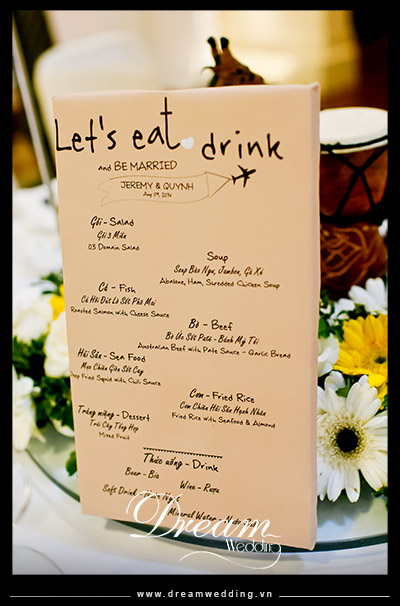 Let's eat drink
and BE MARRIED
JEREMY & QUYNH
Aug 09, 2014
Gỏi - Salad
Gỏi 3 Miền
03 Domain Salad
Soup
Soup Bào Ngư, Jambon, Gà Xé
Abalone, Ham, Shredded Chicken Soup
Cá - Fish
Cá Hồi Đút Lò Sốt Phô Mai
Roasted Salmon with Cheese Sauce
Bò - Beef
Bò Úc Sốt Patê - Bánh Mỳ Tỏi
Australian Beef with Pate Sauce - Garlic Bread
Hải Sản - Sea Food
Mực Chiên Giòn Sốt Cay
Deep Fried Squid with Chili Sauce
Cơm - Fried Rice
Cơm Chiên Hải Sản Hạnh Nhân
Fried Rice with Seafood & Almond
Tráng miệng - Dessert
Trái Cây Tổng Hợp
Mixed Fruit
Thức uống - Drink
Beer - Bia
Wine - Rượu
Soft Drink
Mineral Water
Dream
Wedding
www.dreamwedding.vn